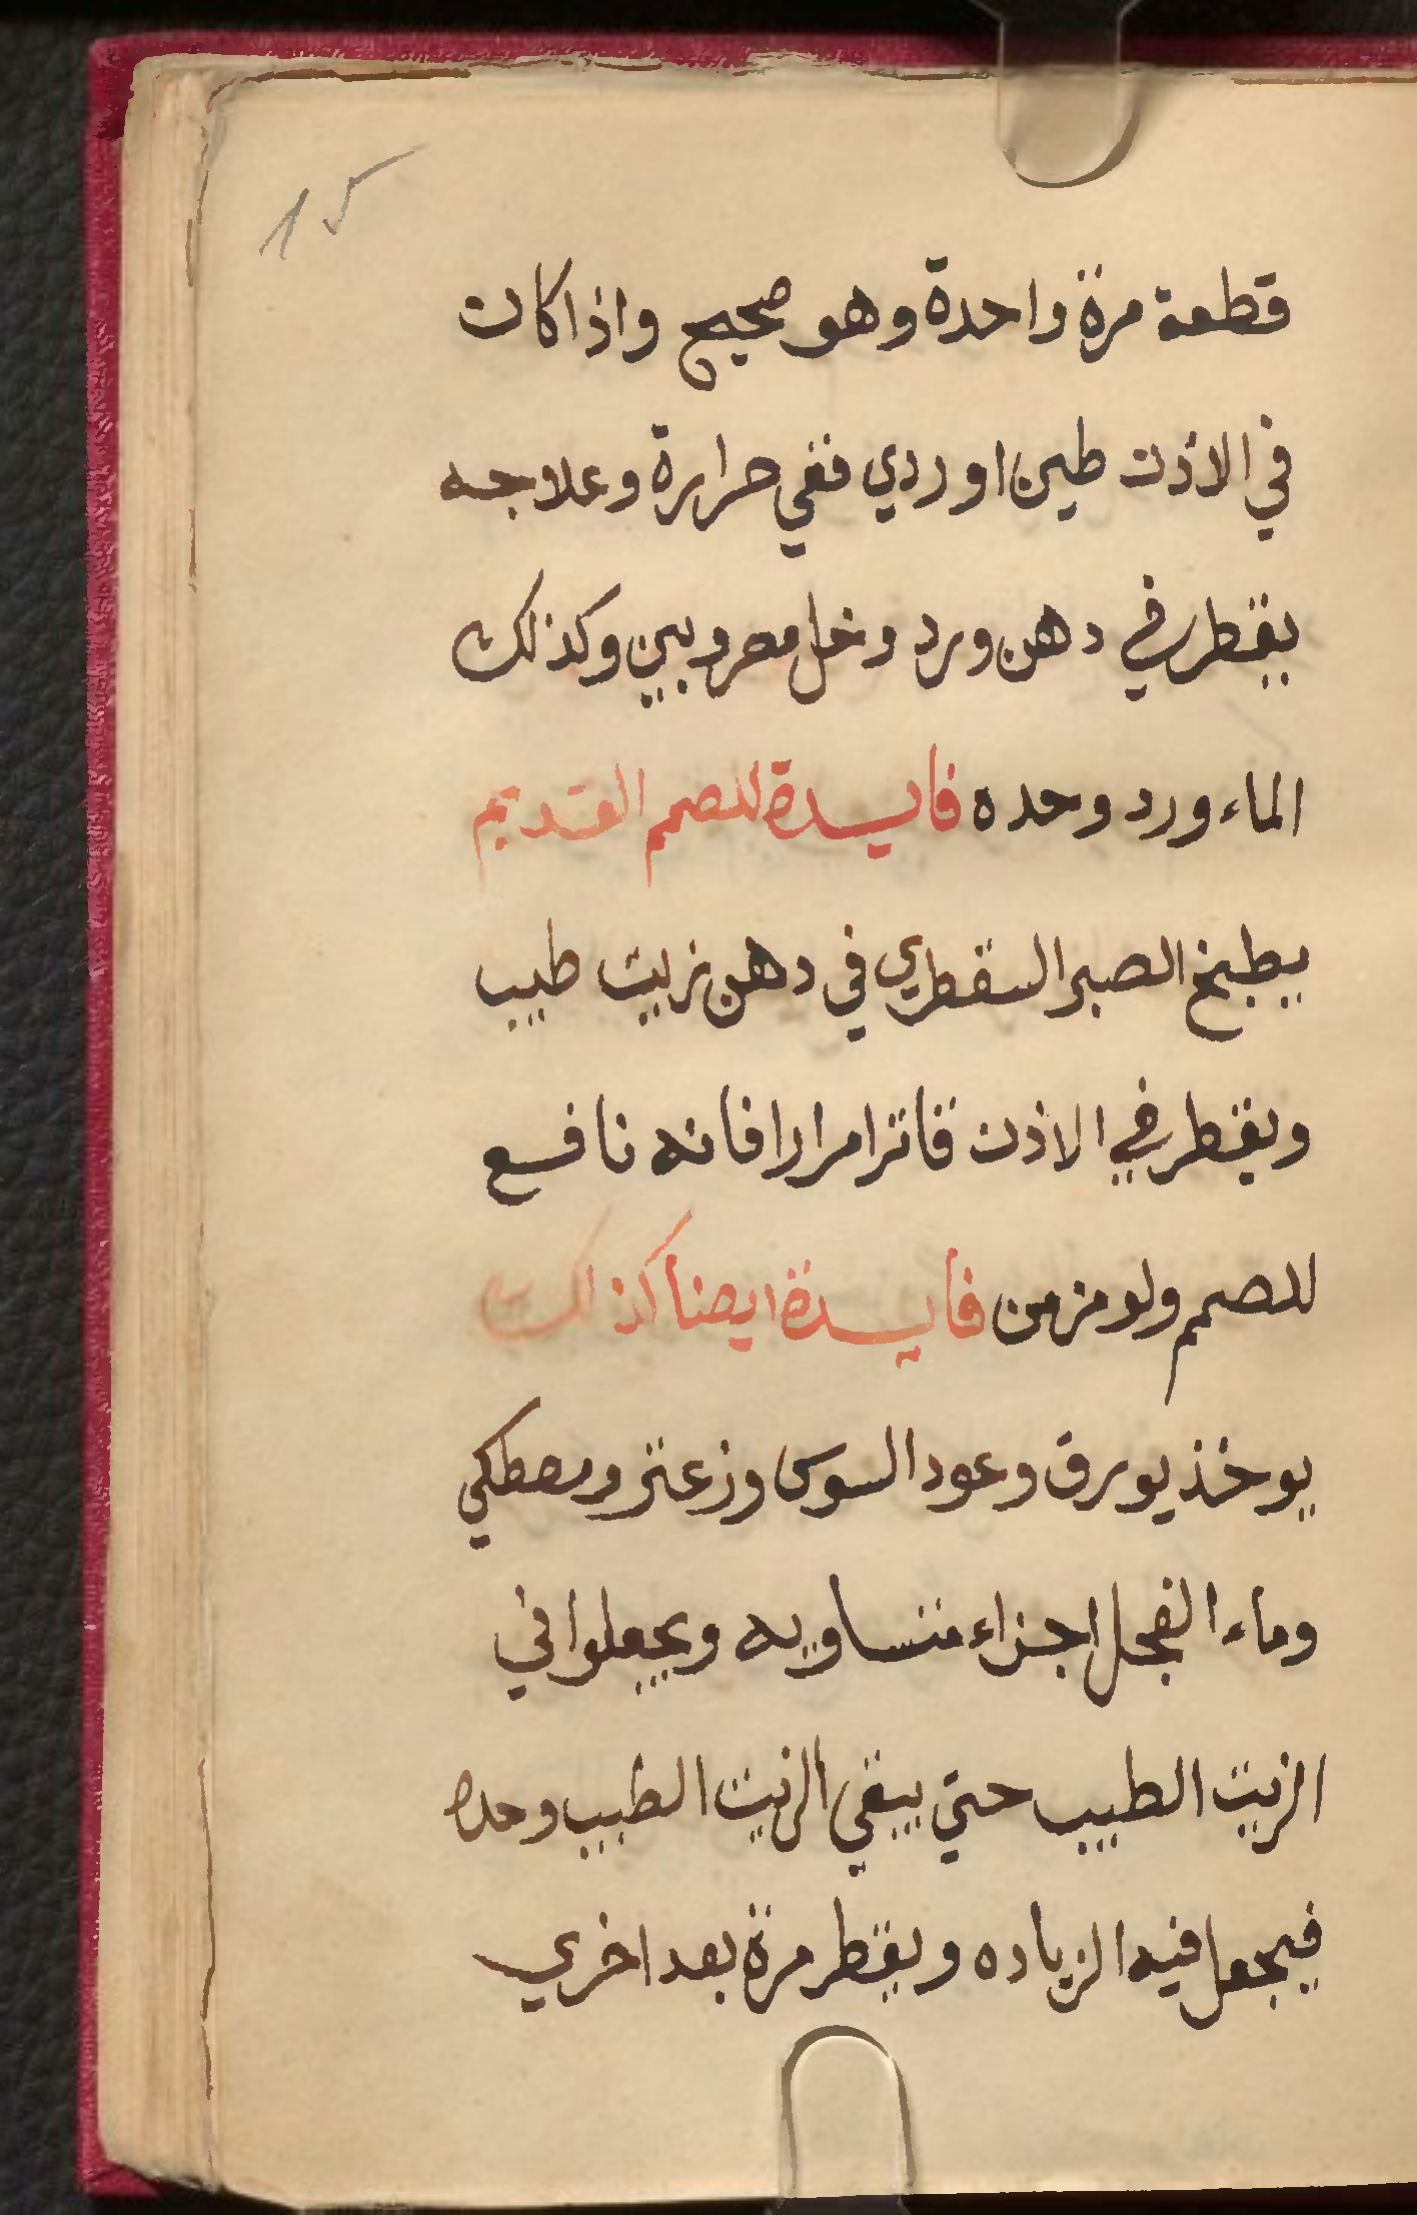 15
قطعة مرة واحدة وهو صحيح واذا كان
في الاذن طين او ردي ففي حرارة وعلاجه
يقطر في دهن ورد وخل مضروبين وكذلك
الماء ورد وحده فايدة للصمم القديم
يطبخ الصبر السقطري في دهن زيت طيب
ويقطر في الاذن فاترا مرارا فانه نافع
للصمم ولو مزمن فايدة ايضا كذلك
يوخذ بورق وعود السوس وزعتر ومصطكي
وماء الفجل اجزاء متساويه ويجعلوا في
الزيت الطيب حتي يبقي الزيت الطيب وحده
فيجعل فيه الزباده ويقطر مرة بعد اخري